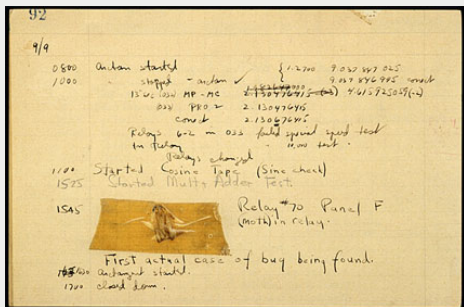 92
9/9
0800 Antan started { 1.2700 9.037 847 025
1000 " stopped - antan ✓ 9.037 846 995 correct
13" MP-MC 2.130476415 (-3) 4.615925059(-2)
033 PRO 2 2.130476415
correct 2.130676415
Relays 6-2 in 033 failed special speed test
in relay " 10,000 test.
Relays changed
1100 Started Cosine Tape (Sine check)
1525 Started Mult+ Adder Test.
1545 Relay #70 Panel F
(moth) in relay.
First actual case of bug being found.
1630 Antangent started.
1700 closed down.